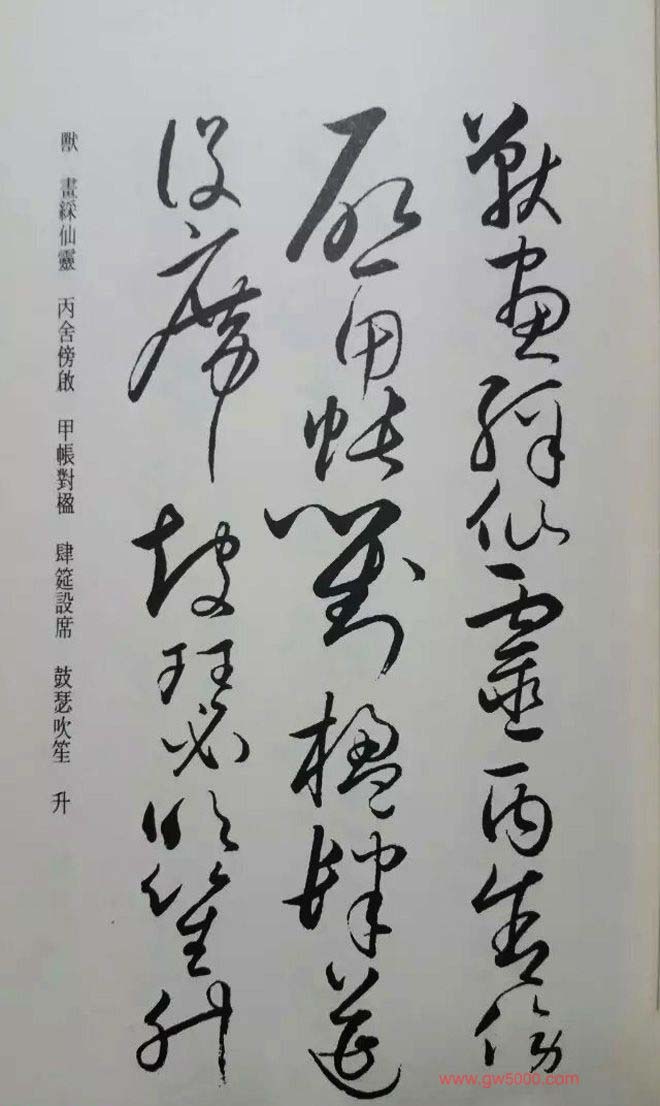 獸畫綵仙靈丙舍傍
啟甲帳對楹肆筵
設席鼓瑟吹笙升
獸 畫綵仙靈 丙舍傍啟 甲帳對楹 肆筵設席 鼓瑟吹笙 升
www.gw5000.com